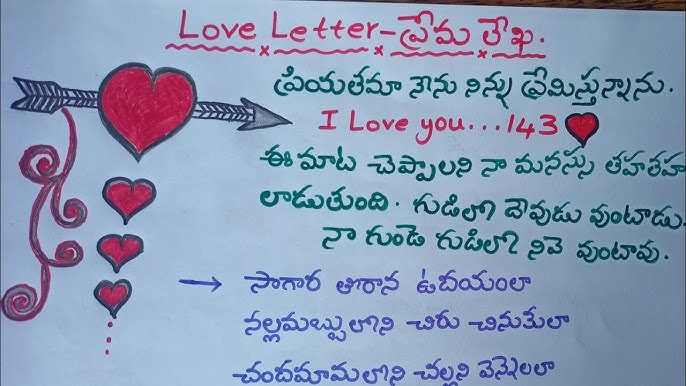 Love Letter-ప్రేమ లేఖ.
ప్రియతమా నేను నిన్ను ప్రేమిస్తన్నాను.
I Love you...143
ఈ మాట చెప్పాలని నా మనస్సు తహతహ
లాడుతుంది. గుడిలో దేవుడు వుంటాడు.
నా గుండె గుడిలో నివె వుంటావు.
→ సాగార తీరాన ఉదయంలా
నల్లమబ్బులోని చిరు చినుకులా
చందమామలోని చల్లని వెన్నెలలా